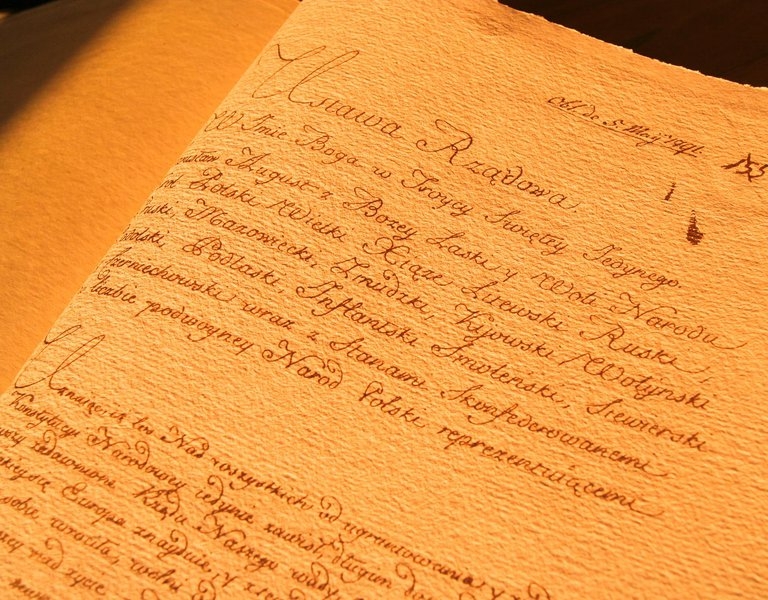 Obl: de 5 Maij 1791.
153
Ustawa Rządowa
W Imie Boga w Troycy Swiętey Jedynego.
August z Bozey Łaski y Woli Narodu
Polski Wielki Xiąze Litewski Ruski,
Pruski, Mazowiecki, Zmudzki, Kijowski Wołyński
Podolski, Podlaski Inflantski Smolenski, Siewierski
Czerniechowski wraz z Stanami Skonfederowanemi
liczbie podwoyney Narod Polski reprezentuiącemi
Uznaiąc iz los Nas wszystkich od ugruntowania y
Konstytucyi Narodowey iedynie zawisł, długim
zadawnione Rządu Naszego wady
Europa znayduie, y
wrociła, wolni
nad zycie